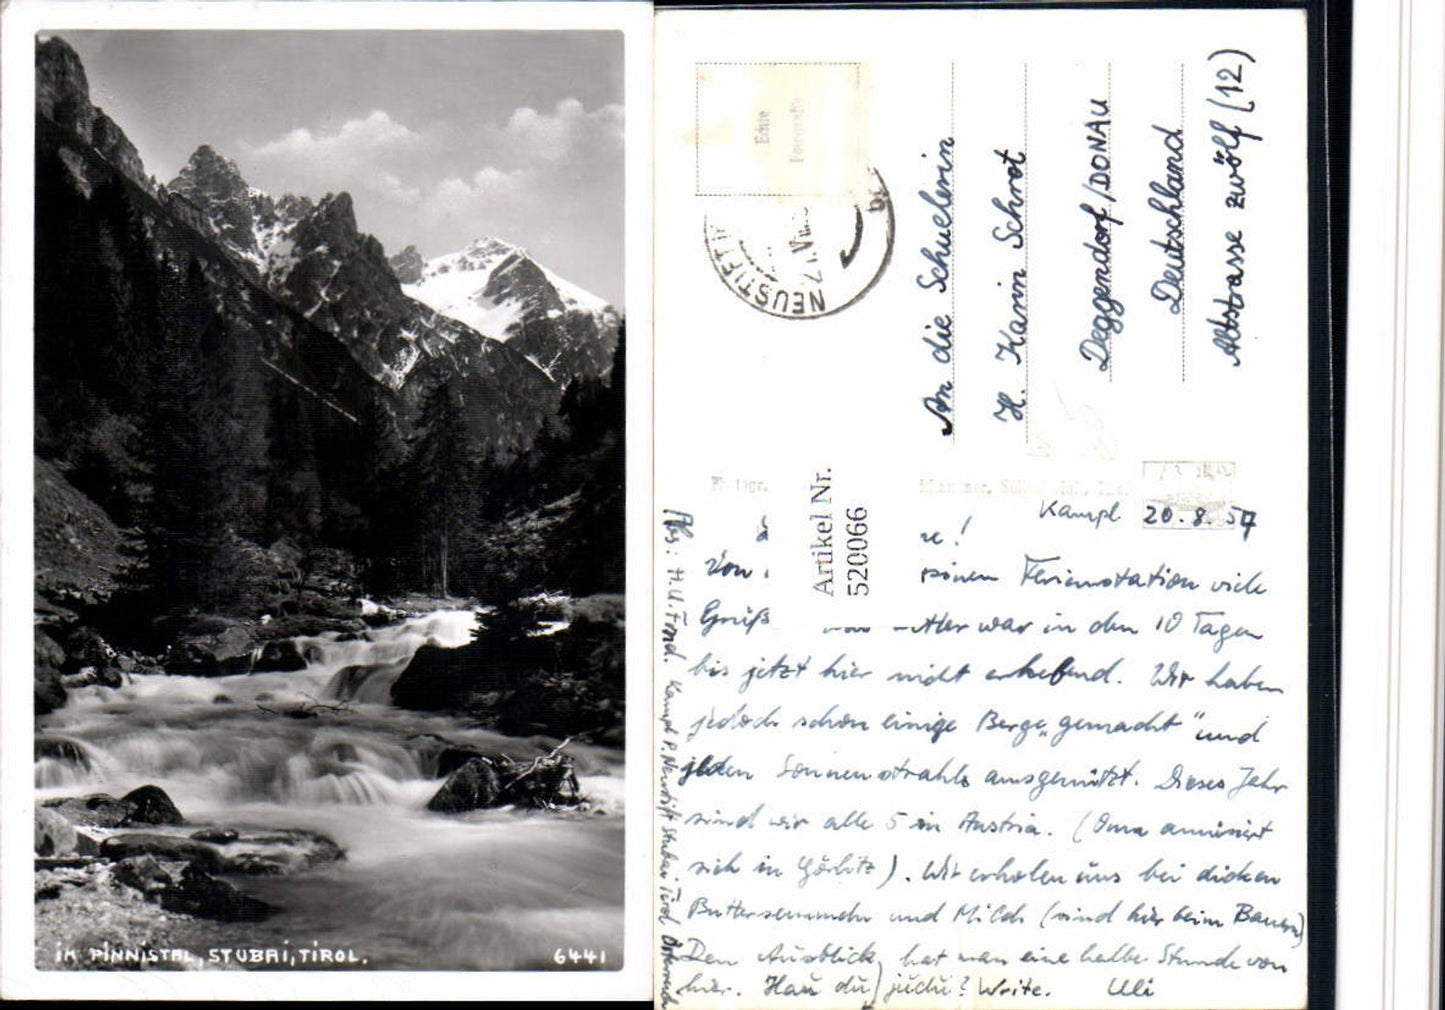 IM PINNISTAL, STUBAI, TIROL.
6441
Echte
NEUSTIFT
An die Schuelerin
H. Karin Schrot
Deggendorf/DONAU
Deutschland
Altstrasse zwölf (12)
Artikel Nr.
520066
Kampl 20.8.57
re!
Von Ferienstation viele
Grüß Wetter war in den 10 Tagen
bis jetzt hier nicht erhebend. Wir haben
jedoch schon einige Berge „gemacht" und
jeden Sonnenstrahl ausgenützt. Dieses Jahr
sind wir alle 5 in Austria. (Oma amüsiert
sich in Görlitz). Wir erholen uns bei dicken
Buttersemmeln und Milch (sind hier beim Bauern)
Den Ausblick hat man eine halbe Stunde von
hier. Write. Uli
Abs: H.U. Kampl P. Neustift Stubai Tirol Österreich